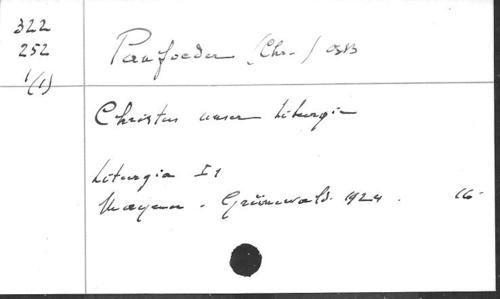 322
252
1/(1)
Panfoeder (Chr.) OSB
Christus unser Liturgie
Liturgia I 1
Mayence - Grünewald. 1924. 16-